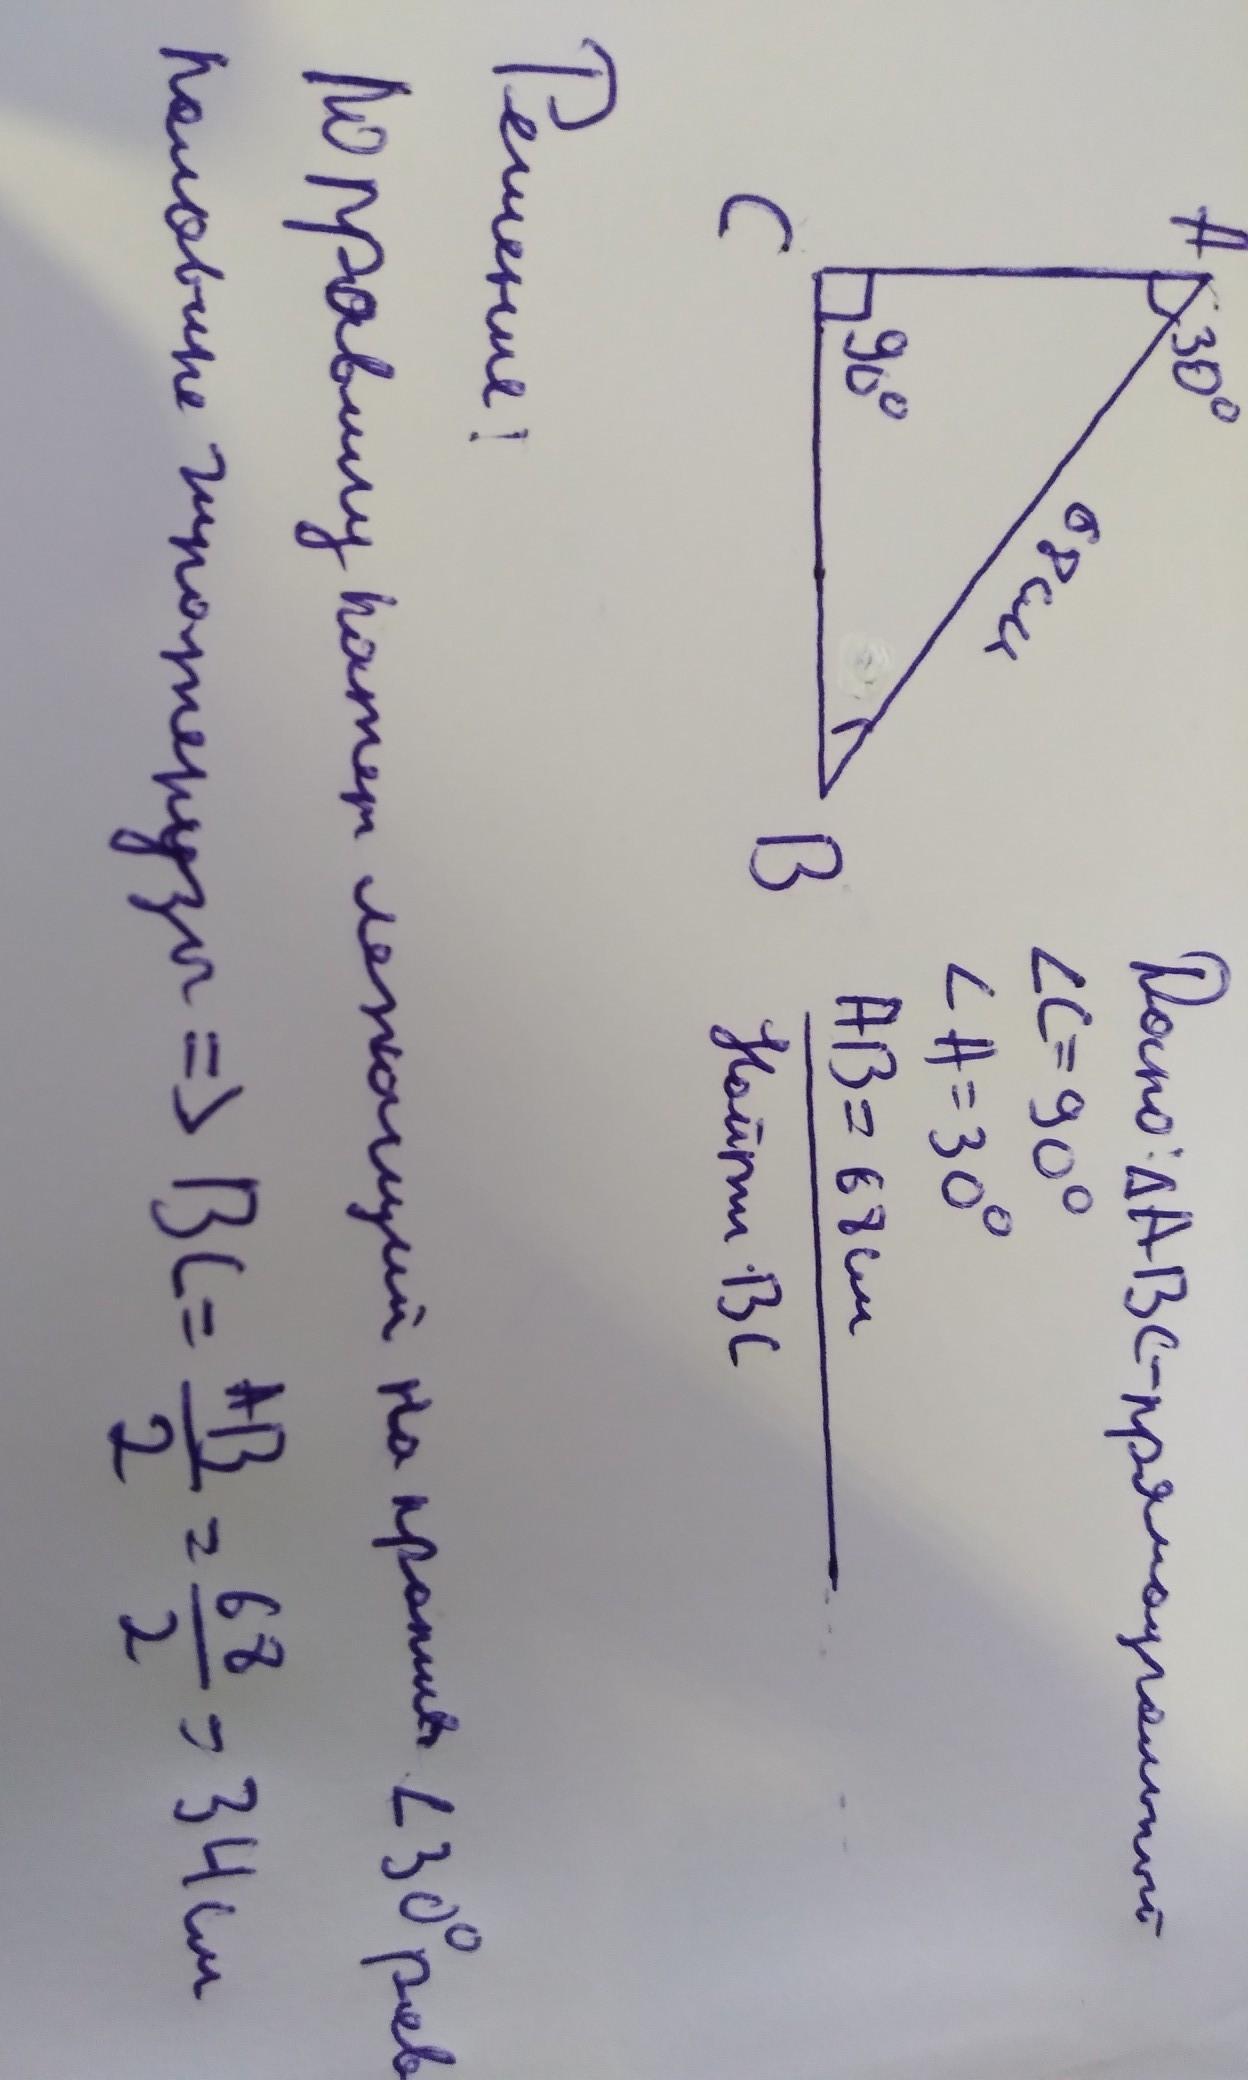 A
30°
68см
90°
C
B
Дано: ΔABC-прямоугольный
∠C=90°
∠A=30°
AB=68см
Найти: BC
Решение:
По правилу катет лежащий на против ∠30° рав
половине гипотенузы => BC= AB/2 = 68/2 = 34см